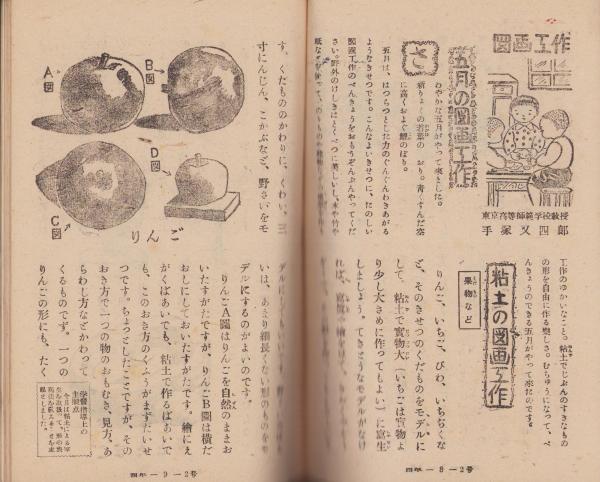 図画工作
東京高等師範学校教授
手家又四郎
五月の図画工作
さわやかな五月がやって来ました。
新りょくの若葉の　おり。青くすんだ空
に高くおよぐ鯉のぼり。
五月は、はつらつとした力のぐんぐんわきあがる
ようなきせつです。こんなよいきせつに、たのしい
図画工作のべんきょうをおもうぞんぶんやってくだ
さい。野外のけしきはとくべつに美しいし、木や竹や
紙など
工作のゆかいなこと。粘土でじぶんのすきなもの
の形を自由に作る楽しさ。むちゅうになって、べ
んきょうのできる五月がやって来たのです。
粘土の図画工作
果物など
りんご、いちご、びわ、いちぢくな
ど、そのきせつのくだものをモデルに
して、粘土で実物大（いちごは実物よ
り少し大きめに作ってもよい）に写生
しましょう。てきとうなモデルがなけ
れば、
四年－8－2号
す、くだもののかわりに、くわい、三
寸にんじん、こかぶなど、野さいをモ
A図
B図
C図
D図
りんご
デル
いは、あまり細長くない形のものをモ
デルにするのがよいのです。
りんごA図はりんごを自然のままお
いたすがたですが、りんごB図は横だ
おしにしておいたすがたです。絵にえ
がくばあいでも、粘土で作るばあいで
も、このおき方のくふうがまずたいせ
つです。ちょっとしたことですが、その
おき方で一つの物のおもむき、見方、あ
らわし方などかわって
くるものです。一つの
りんごの形にも、たく
学習指導上の
主眼点
四年－9－2号